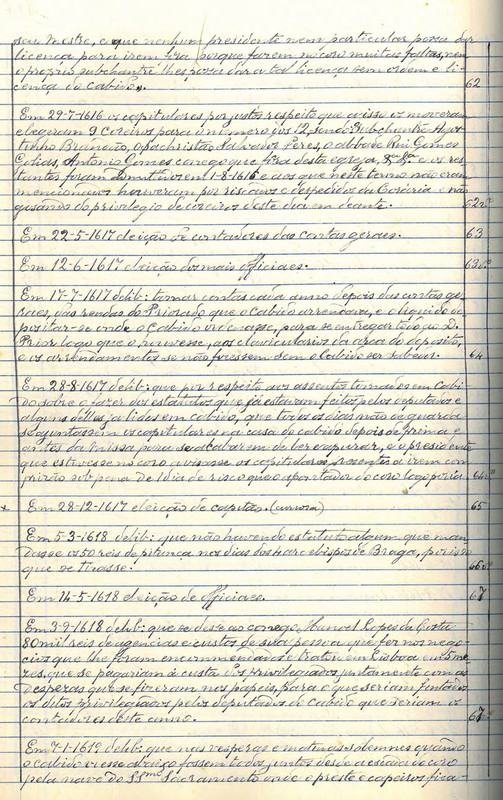 seu mestre, e que nenhum presidente nem particular possa dar
licença para irem fóra porque fazem no coro muitas faltas, nem
o proprio subchantre lhes possa dar a tal licença sem ordem e li-
cença do cabido». 62
Em 29-7-1616 os capitulares por justos respeitos que a isso os moveram
elegeram 9 coreiros para o numero dos 12, sendo Subchantre Agos-
tinho Brandão, o sachristão Salvador Peres, o adibado Rui Gomes
Golias, Antonio Gomes conego que fôra desta egreja, &. &ª e os res-
tantes foram admittidos em 1-8-1616 e aos que neste termo não eram
mencionados houveram por riscados e despedidos da Coraria e não
gosarão do privilegio de coreiros deste dia em deante. 62vº
Em 22-5-1617 eleição de contadores das contas geraes. 63
Em 12-6-1617 eleição dos mais officiaes. 63vº
Em 17-7-1617 delib: tomar contas cada anno depois das contas ge-
raes, das rendas do Priorado que o Cabido arrendava, e o liquido de-
positar-se onde o Cabido ordenasse, para se entregar tudo ao D.
Prior logo que o houvesse, aos clavicularios da arca do deposito,
e os arrendamentos se não fizessem sem o Cabido ser sabedor. 64
Em 28-8-1617 delib: que por respeito aos assentos tomados em Cabi-
do sobre o fazer dos estatutos que já estavam feitos pelos deputados e
alguns delles já lidos em cabido, que todos os dias não de guarda
se ajuntassem os capitulares na casa do cabido depois de prima e
antes da missa para se acabarem de ler e apurar, e o presidente
que estivesse no coro avisasse os capitulares presentes a irem com-
prir o sob pena de 1 dia de risco que o apontador do coro logo poria. 64vº
x Em 28-12-1617 eleição de capitão. (curiosa) 65
Em 5-3-1618 delib: que não havendo estatuto algum que man-
dasse os 50 reis de pitança nos dias dos 4 arcebispos de Braga, por isso
que se tirasse. 66vº
Em 14-5-1618 eleição de officiaes. 67
Em 3-9-1618 delib: que se désse ao conego Manoel Lopes da Costa
80 mil reis de agencias e custos de sua pessoa que fez nos nego-
cios que lhe foram encommendados e tratou em Lisboa em 5 me-
zes, que se pagariam á custa dos privilegiados juntamente com as
despezas que se fizeram nos papeis, para o que seriam fintados
os ditos privilegiados pelos deputados do cabido que seriam os
contadores deste anno. 67vº
Em 7-1-1619 delib: que nas vesperas e matinas solemnes quando
o cabido viesse abaixo fossem todos juntos desde a escada do coro
pela nave do SSmo Sacramento onde o preste e capeiros fica-